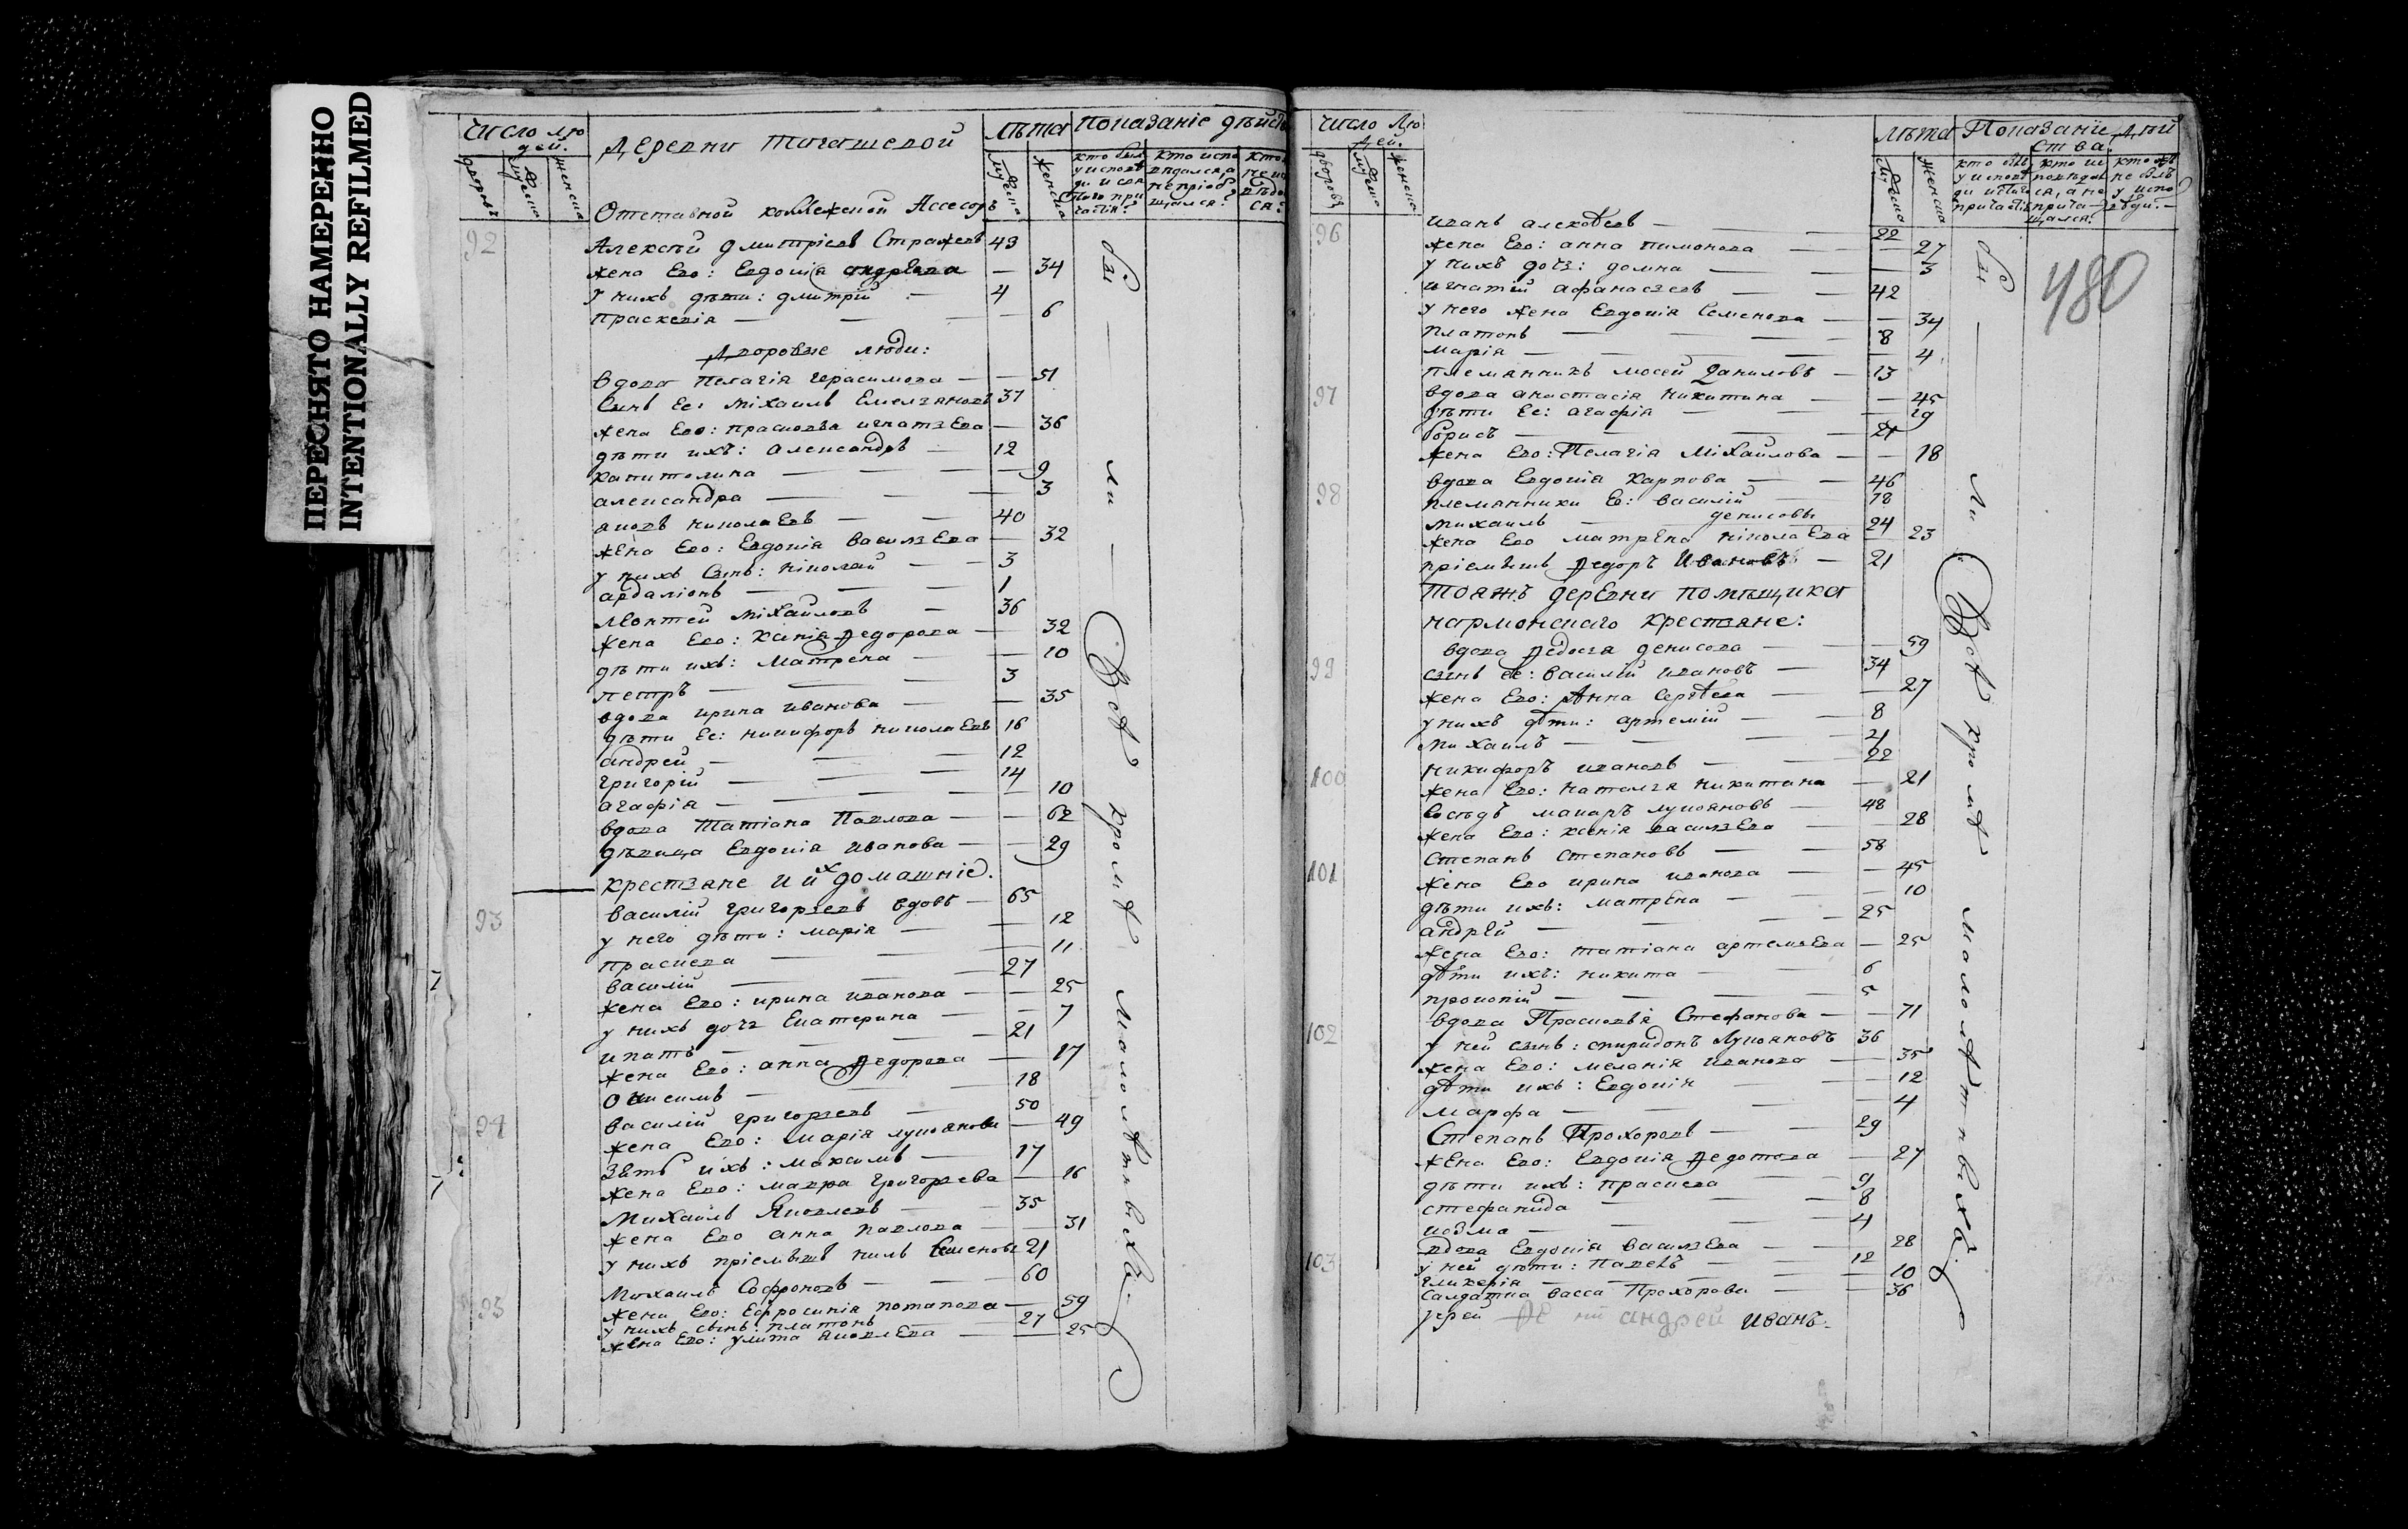 ПЕРЕСНЯТО НАМЕРЕННО
INTENTIONALLY REFILMED
Число лю
дей.
Деревни Тогашевой
Лѣта
Показаніе дѣйст
дворовъ
мужеска
женска
мужеска
женска
Отставной коллежской Ассесоръ
92 Алексѣй Дмитріевъ Стражевъ 43
жена Его: Евдокія Андрѣева — 34
у нихъ дѣти: Дмитрій — 4
Праскевія — 6
Дворовые люди:
вдова Пелагія Герасимова — 51
Сынъ Ее: Міхаилъ Емельяновъ 37
жена Его: Прасковья Игнатьева — 36
дѣти ихъ: Александръ — 12
Капитолина — 9
Александра — 3
Яковъ Николаевъ — 40
жена Его: Евдокія Васильева — 32
у нихъ сынъ: Николай — 3
Ардаліонъ — 1
Леонтей Міхайловъ — 36
жена Его: Ксенія Федорова — 32
дѣти ихъ: Матрена — 10
Петръ — 3
вдова Ирина Иванова — 35
дѣти Ее: Никифоръ Николаевъ 16
Андрей — 12
Григорій — 14
Агафія — 10
вдова Татіана Павлова — 62
дѣвица Евдокія Иванова — 29
крестьяне ихъ домашніе.
93 Василій Григорьевъ вдовъ — 65
у него дѣти: Марія — 12
Праскева — 11
Василій — 27
жена Его: Ирина Иванова — 25
у нихъ дочь Екатерина — 7
Ипатъ — 21
жена Его: Анна Федорова — 17
Онисимъ — 18
94 Василій Григорьевъ — 50
жена Его: Марія Лукоянова — 49
Зять ихъ: Максимъ — 17
жена Его: Мавра Григорьева — 16
Михаилъ Яковлевъ — 35
жена Его Анна Павлова — 31
у нихъ пріемышъ Нилъ Семеновъ 21
95 Михаилъ Софроновъ — 60
жена Его: Ефросинія Потапова — 59
у нихъ сынъ: Платонъ — 27
жена Его: Улита Яковлева — 25
были Всѣ кромѣ малолѣтныхъ
Число Лю
дей.
Лѣта
Показаніе дѣй
ства.
дворовъ
мужеска
женска
мужеска
женска
480
96 Иванъ Алексѣевъ — 22
жена Его: Анна Пимонова — 27
у нихъ дочь: Домна — 3
Игнатій Афанасьевъ — 42
у него жена Евдокія Семенова — 34
Платонъ — 8
Марія — 4
племянникъ Мосей Даниловъ — 13
97 вдова Анастасія Никитина — 45
дѣти Ее: Агафія — 19
Борисъ — 21
жена Его: Пелагія Міхайлова — 18
98 вдова Евдокія Карпова — 46
племянники Ее: Василій — 18
Михаилъ — Денисовы 24
жена Его Матрена Николаева — 23
пріемышъ Федоръ Ивановъ — 21
Тояжъ деревни помѣщика
Нармонскаго крестьяне:
вдова Федосья Денисова — 59
99 сынъ Ее: Василій Ивановъ — 34
жена Его: Анна Сергѣева — 27
у нихъ дѣти: Артемій — 8
Михаилъ — 4
100 Никифоръ Ивановъ — 22
жена Его: Наталья Никитина — 21
Сосѣдъ Макаръ Лукояновъ — 48
жена Его: Ксенія Васильева — 28
101 Степанъ Степановъ — 58
жена Его Ирина Иванова — 45
дѣти ихъ: Матрена — 10
Андрей — 25
жена Его: Татіана Артемьева — 25
дѣти ихъ: Никита — 6
Прокопій — 5
вдова Прасковья Стефанова — 71
102 у ней сынъ: Спиридонъ Лукояновъ 36
жена Его: Меланія Иванова — 35
дѣти ихъ: Евдокія — 12
Марфа — 4
Степанъ Прохоровъ — 29
жена Его: Евдокія Федотова — 27
дѣти ихъ: Праскева — 9
Стефанида — 8
Козма — 4
103 вдова Евдокія Васильева — 28
у ней дѣти: Павелъ — 12
Гликерія — 10
Салдатка Васса Прохорова — 36
Іерей Андрей Иванъ.
были Всѣ кромѣ малолѣтныхъ